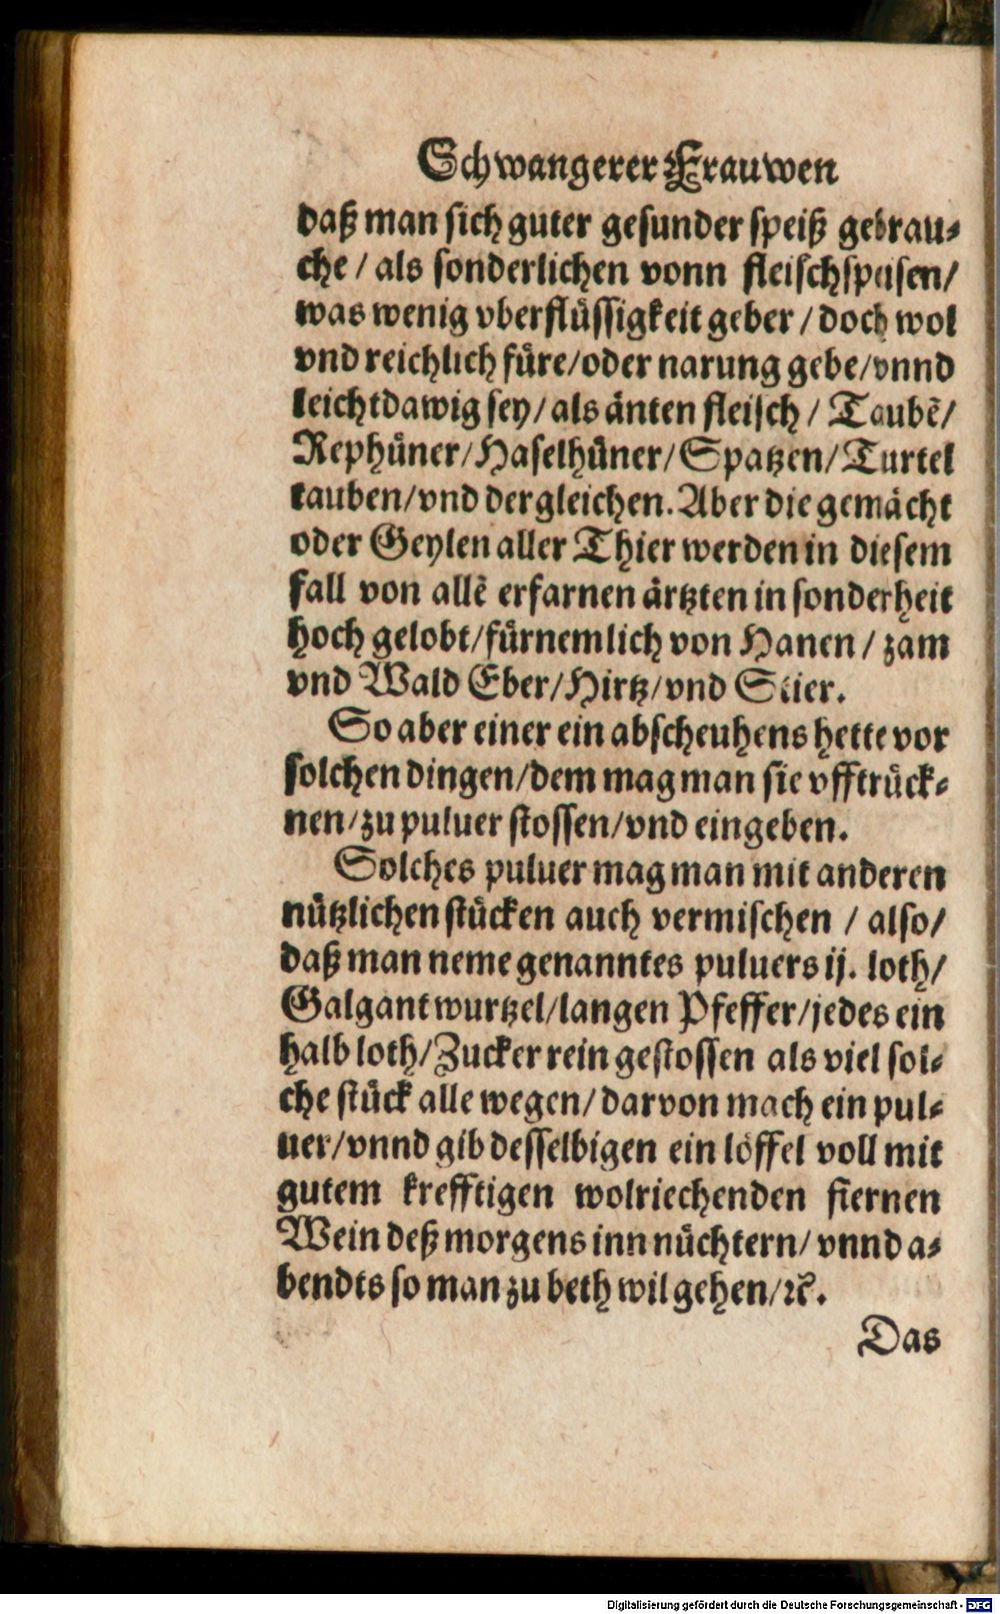 Schwangerer Frauwen
daß man sich guter gesunder speiß gebrau⸗
che / als sonderlichen vonn fleischspeisen/
was wenig vberflüssigkeit geber / doch wol
vnd reichlich füre/oder narung gebe/vnnd
leichtdawig sey/als änten fleisch / Taubẽ/
Rephüner/Haselhüner/Spatzen/Turtel
tauben/vnd dergleichen. Aber die gemächt
oder Geylen aller Thier werden in diesem
fall von allẽ erfarnen ärtzten in sonderheit
hoch gelobt/fürnemlich von Hanen / zam
vnd Wald Eber/Hirtz/vnd Stier.
So aber einer ein abscheuhens hette vor
solchen dingen/dem mag man sie vfftrück⸗
nen/zu puluer stossen/vnd eingeben.
Solches puluer mag man mit anderen
nützlichen stücken auch vermischen / also/
daß man neme genanntes puluers ij. loth/
Galgantwurtzel/langen Pfeffer/jedes ein
halb loth/Zucker rein gestossen als viel sol⸗
che stück alle wegen/darvon mach ein pul⸗
uer/vnnd gib desselbigen ein löffel voll mit
gutem krefftigen wolriechenden fiernen
Wein deß morgens inn nüchtern/vnnd a⸗
bendts so man zu beth wil gehen/ꝛc̃.
Das
Digitalisierung gefördert durch die Deutsche Forschungsgemeinschaft - DFG